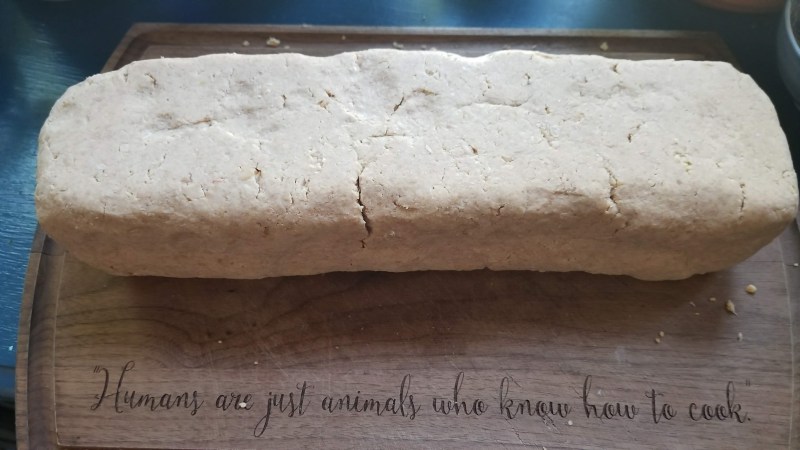 "Humans are just animals who know how to cook."